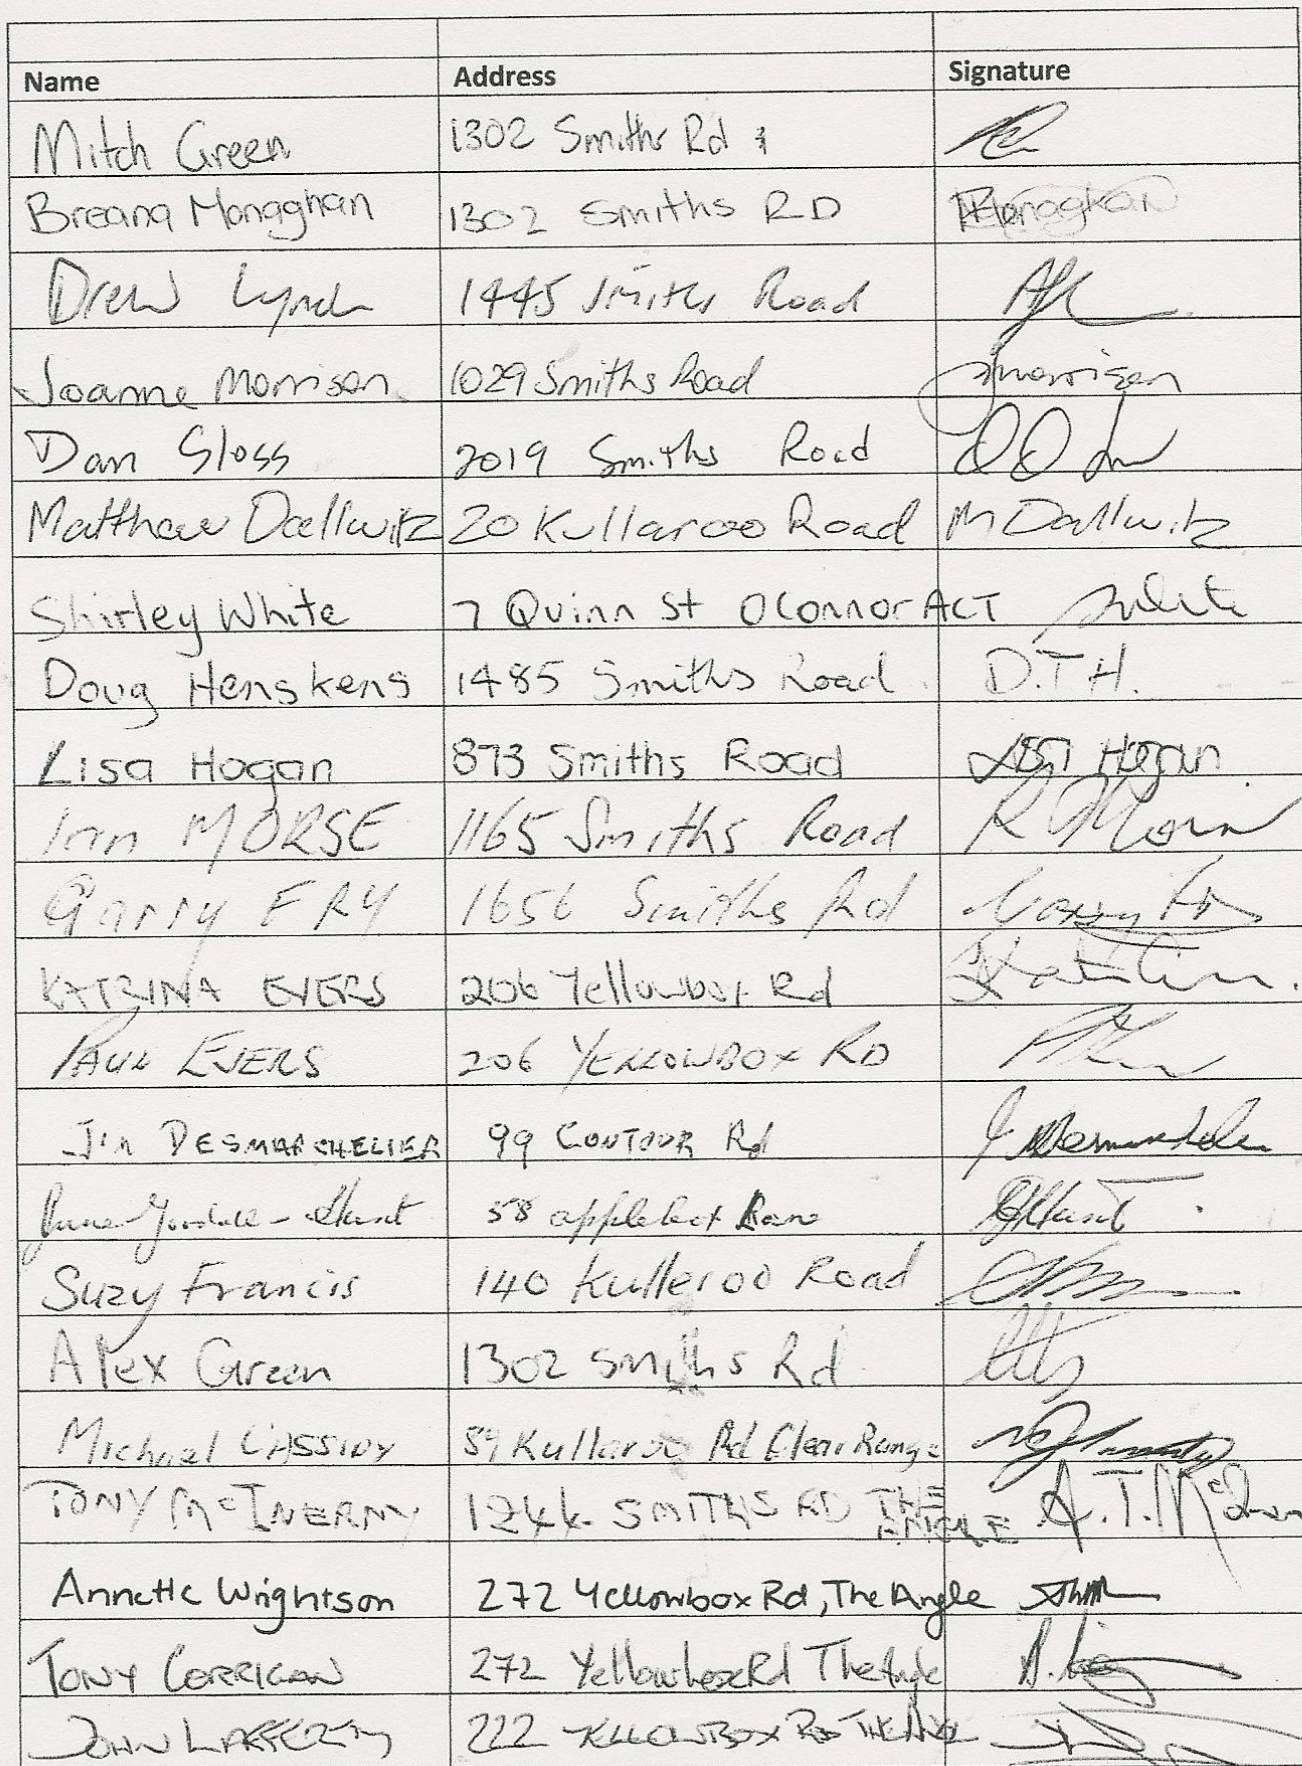 Name Address Signature
Mitch Green 1302 Smiths Rd
Breana Monaghan 1302 Smiths RD Monaghan
Drew Lynch 1445 Smiths Road
Joanne Morrison 1029 Smiths Road Jmorrison
Dan Sloss 2019 Smiths Road
Matthew Dallwitz 20 Kullaroo Road M Dallwitz
Shirley White 7 Quinn St OConnor ACT
Doug Henskens 1485 Smiths Road D.T.H.
Lisa Hogan 873 Smiths Road Lisa Hogan
MORSE 1165 Smiths Road
Garry FRY 1656 Smiths Rd Garry Fry
KATRINA EVERS 206 Yellowbox Rd
PAUL EVERS 206 YELLOWBOX RD
Jim DESMARCHELIER 99 CONTOUR Rd
58 applebox Lane
Suzy Francis 140 Kulleroo Road
Alex Green 1302 Smiths Rd
Michael CASSIDY 59 Kullaroo Rd Clear Range
TONY McINERNY SMITHS RD THE ANGLE A.T.
Annette Wrightson 272 Yellowbox Rd, The Angle
TONY CORRIGAN 272 Yellowbox Rd The Angle
JOHN LAFFERTY 222 YELLOWBOX RD THE ANGLE